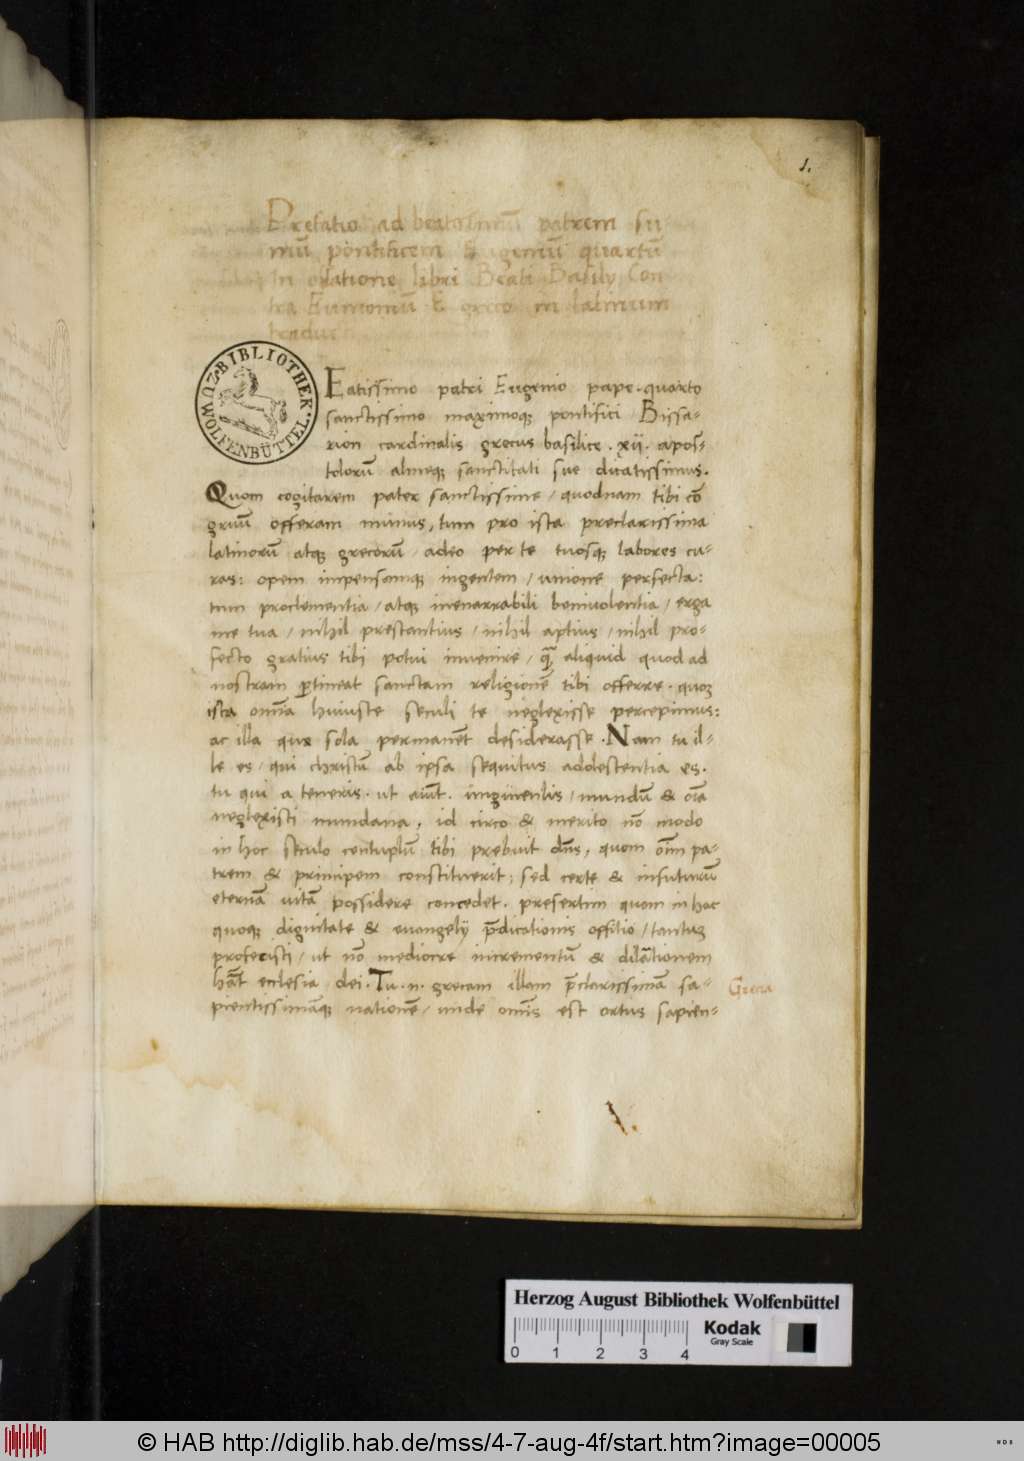 1.
Prefatio ad beatissimū patrem su
mū pontificem Eugeniū quartū
In oratione libri Beati Basilij Con
tra Eunomiū E greco in latinum
traduc
Eatissimo patri Eugenio pape · quarto
sanctissimo maximoq; pontifici Bissa-
rion cardinalis grecus basilice · xij · apos-
tolorū almeq; sanctitati sue dicatissimus.
Quom cogitarem pater sanctissime / quodnam tibi cō
gruū offeram munus, tum pro ista preclarissima
latinorū atq; grecorū / adeo per te tuosq; labores cu-
ras: opem impensamq; ingentem / unione perfecta:
tum pro clementia / atq; inenarrabili beniuolentia / erga
me tua / nihil prestantius / nihil aptius / nihil pro-
fecto gratius tibi potui inuenire / q̄ aliquid quod ad
nostram ptineat sanctam religionē tibi offerre · quoꝫ
ista omīa huiusce seculi te neglexisse percepimus:
ac illa quæ sola permanēt desiderasse · Nam tu il-
le es / qui christū ab ipsa sequutus adolescentia es.
tu qui a teneris · ut aiūt · unguiculis / mundū & oīa
neglexisti mundana, id circo & merito nō modo
in hoc seculo centuplū tibi prebuit dn̄s, quom oīm pa-
trem & principem constituerit; sed certe & in futurū
eternā uitā possidere concedet · presertim quom in hac
quoq; dignitate & euangelij p̄dicationis offitio / tantuꝫ
profecisti / ut nō mediocre incrementū & dilātionem
hāt ecclesia dei · Tu · n · grecam illam p̄clarissimā sa-
pientissimāq; nationē / unde omīs est ortus sapien-
Grecia
BIBLIOTHEK · ZU WOLFENBÜTTEL ·
Herzog August Bibliothek Wolfenbüttel
0 1 2 3 4
Kodak
Gray Scale
© HAB http://diglib.hab.de/mss/4-7-aug-4f/start.htm?image=00005